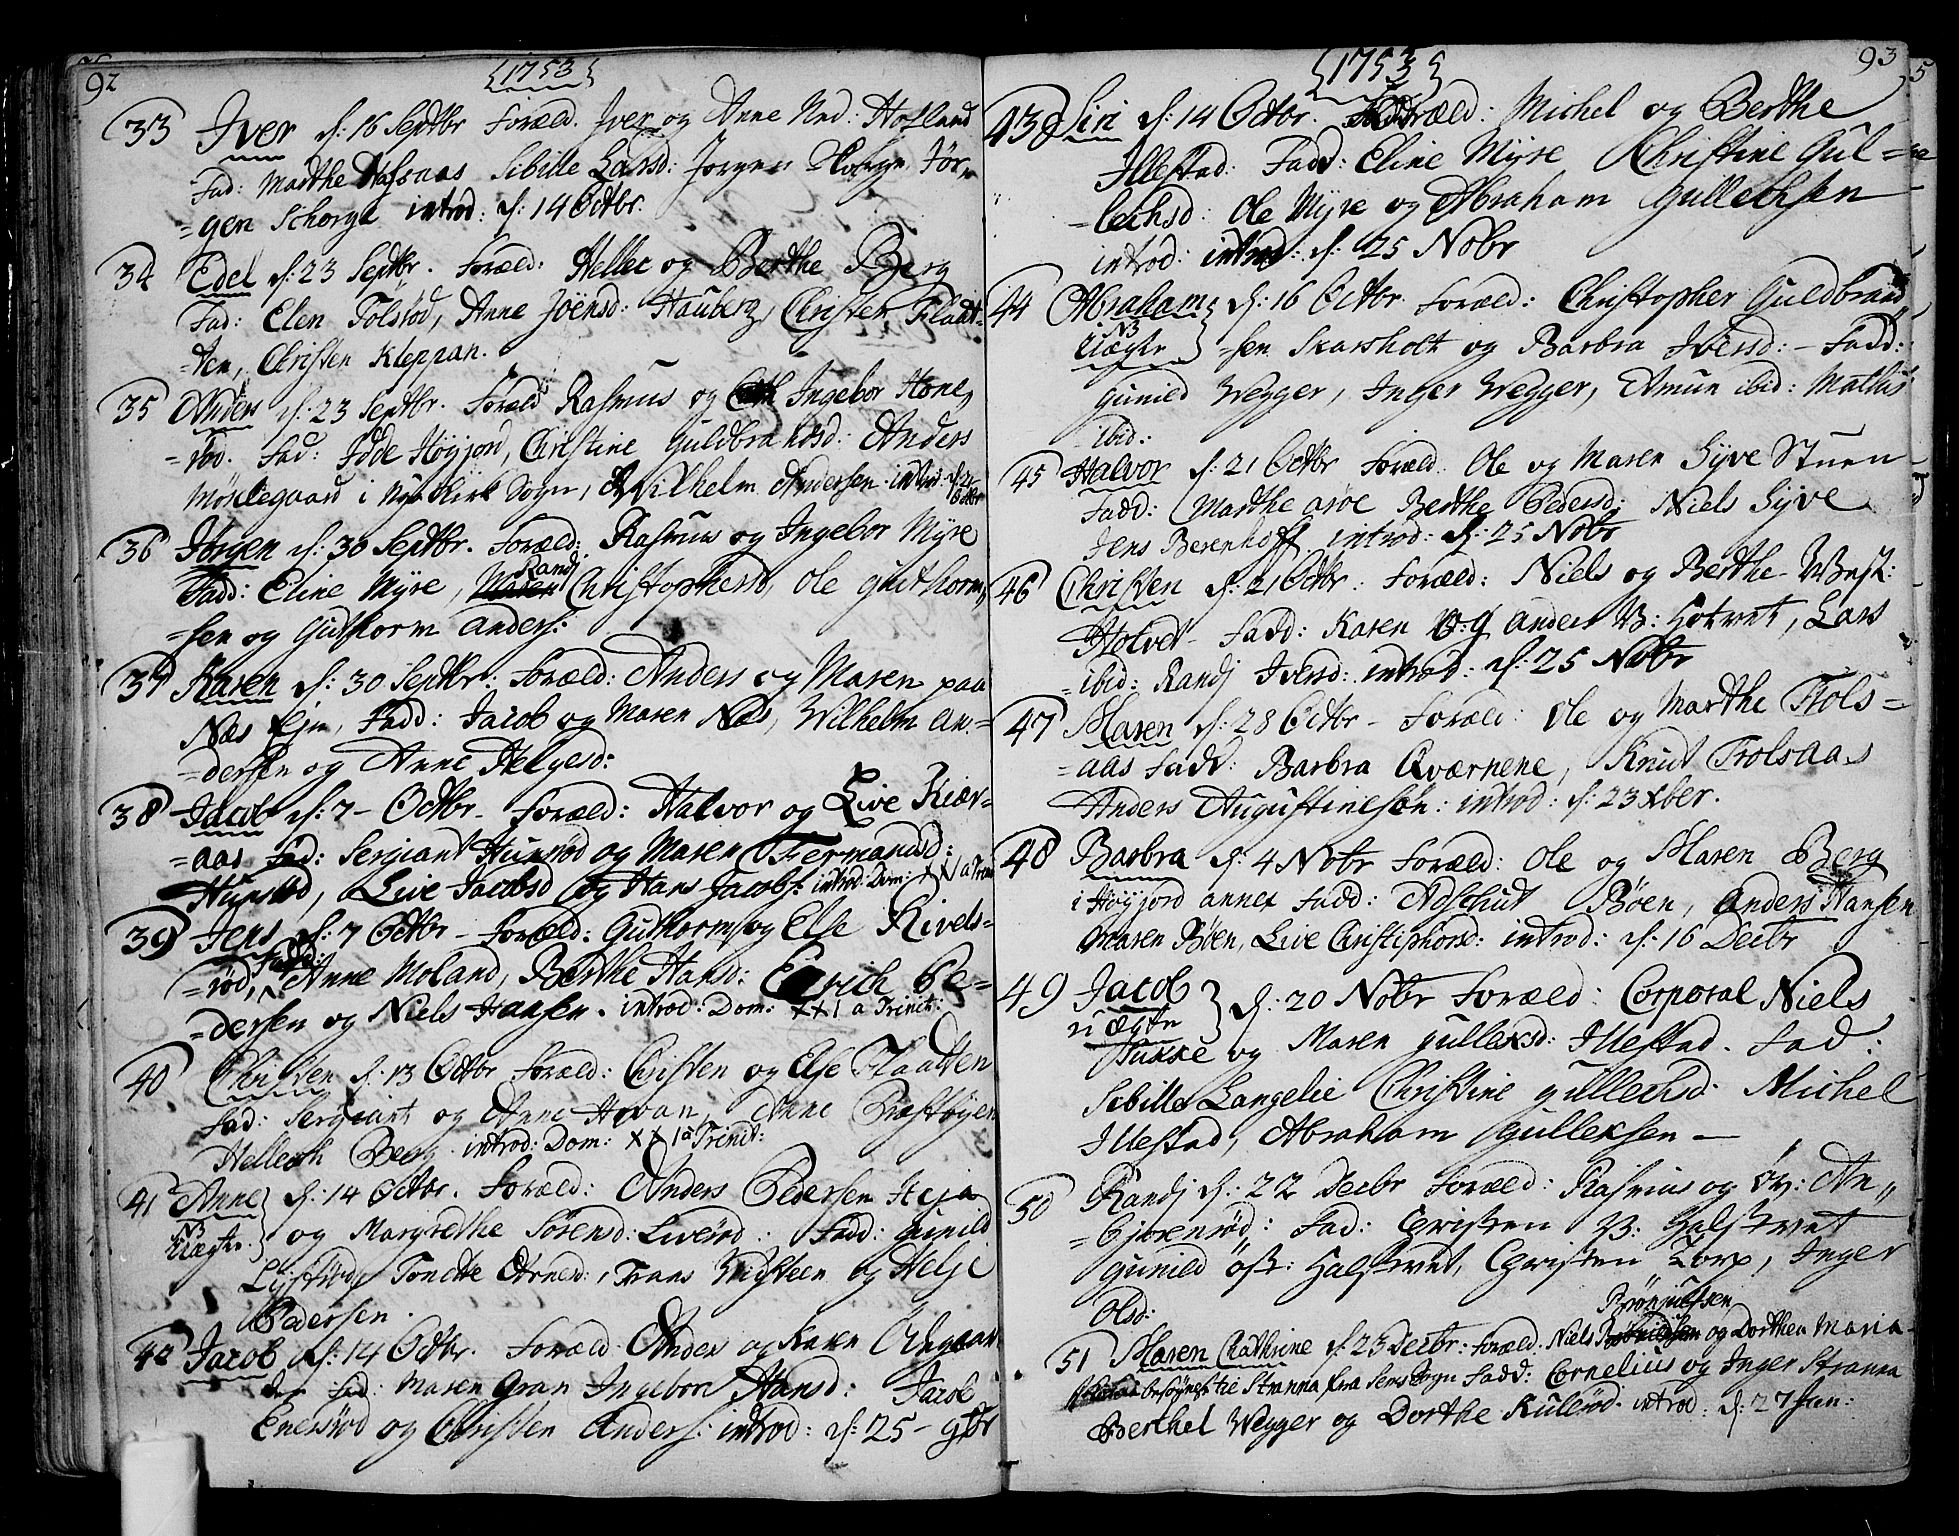 92
1753
33 Iver d: 16 Septbr Foræld. Iver og Anne Ned: Hotland
Fad: Marthe Hafsnaas Sibille Larsd: Jorgen Jør,,
=gen Schorge introd: d: 14 Octbr.
34 Edel d: 23 Septbr. Foræld: Hellec og Berthe Berg
Fad: Elen Tolsrød, Anne Joensd: Hauberg, Christen Flaat=
=ten, Christen Kleppan.
35 Anders d: 23 Septbr. Foræld Rasmus og Ingebor Hone,,
=rød. Fad: Idde Høyjord, Christine Guldbrandsd: Anders
Mørklegaard i Nykirk Sogn, Wilhelm Andersen introd: d: 21 Octbr
36 Jørgen d: 30 Septbr. Foræld: Rasmus og Ingebor Myre
Fadd: Eline Myre, Randj Christophersd, Ole Guthorm,,
=sen og Guthorm Anders:
37 Karen d: 30 Septbr: Foræld: Anders og Maren paa
Næs Eje, Fadd: Jacob og Maren Næs, Wilhelm An=
=dersen og Anne Helgesd:
38 Jacob d: 7 - Octbr - Foræld: Halvor og Live Kiær=
=aas Fad: Sergiant Hunsrød og Maren Fermansd:
Hunsrød, Live Jacobsd og Hans Jacobs: introd: Dom: XXI a Trinit
39 Jens d: 7 Octbr - Foræld: Guthorm og Else Kivels=
=rød, Fadd: Anne Moland, Berthe Hansd: Erich Pe=
=dersen og Niels Hansen. introd: Dom: XXI a Trinit:
40 Christen d: 13 Octbr Foræld: Christen og Else Flaatten
Fad: Sergeant og Anne Hovan, Anne Præstbyen
Hellech Berg. introd: Dom: XXI a Trinit:
41 Anne d: 14 Octbr. Foræld: Anders Pedersen Heja
NB Uægte. og Margrethe Sørensd: Liverød: Fadd: Gunild
Lystrød, Tonette Arnesd:, Frans Hvidsteen og Helje
Pedersen.
42 Jacob d: 14 Octbr. Foræld Anders og Karen Ødegaar
den Fad: Maren Gran Ingebor Hansd: Jacob
Enersrød og Christen Anders: introd: d: 25 - 9br
93
1753
43 Siri d: 14 Octbr. Foræld: Michel og Berthe
Illestad. Fadd: Eline Myre Christine Gul=
=lechsd: Ole Myre og Abraham Gullechsen
introd: introd: d: 25 Nobr
44 Abraham d: 16 Octbr. Foræld: Christopher Guldbrand
NB Uægte =sen Skarsholt og Barbra Iversd: - Fadd:
Gunild Wegger, Inger Wegger, Amun ibid: Mathis
ibid:
45 Halvor d: 21 Octbr Foræld: Ole og Maren Syve Stuen
Fadd: Marthe Berthe Pedersd: Niels Syve
Jens Berenhoff introd: d: 25 Nobr
46 Christen d: 21 Octbr: Foræld: Niels og Berthe West:
Hotvet - Fadd: Karen og Anders W: Hotvet, Lars
=ibid: Randj Iversd: introd: d: 25 Nobr
47 Maren d: 28 Octbr - Foræld: Ole og Marthe Trols=
=aas Fadd: Barbra Qværnene, Knut Trolsaas
Anders Augustinesøn: introd: d: 23 Xber.
48 Barbra d: 4 Nobr Foræld: Ole og Maren Berg
i Høyjord annex Fadd: Adshut Bøen, Anders Hansen
Maren Bøen, Live Christiphorsd: introd: d: 16 Decbr
49 Jacob d: 20 Nobr Foræld: Corporal Niels
uægte Hukke og Maren Gulleksd: Illestad. Fad:
Sibille Langelie Christine Gullechsd: Michel
Illestad, Abraham Gulleksen —
50 Randj d: 22 Decbr Foræld: Rasmus og øv: An,,
=Gjerenrød: Fad: Christen B: Halstvet
Gunild Øst: Halstvet, Christen Torp, Inger
Olsd:
51 Maren Cathrine d: 23 Decbr: Foræld: Niels Brønjulfsen og Dorthea Maria
besøgnet til Stranna fra Sems Sogn Fadd: Cornelius og Inger Stranna
Berthel Wegger og Dorthe Kulerød. introd: d: 27 Jan: